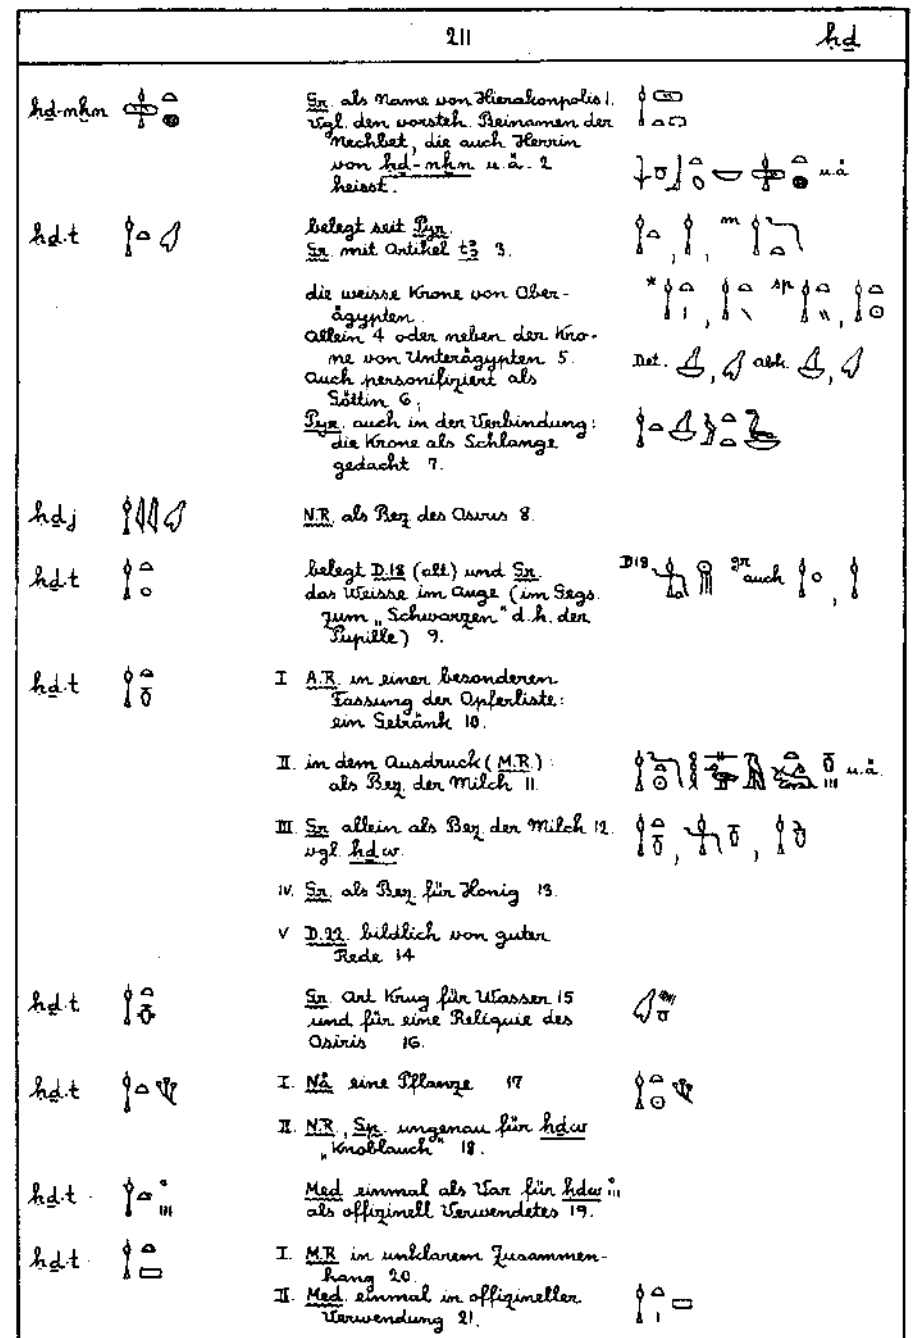 211 ḥḏ
ḥḏ-nḫn Gr. als Name von Hierakonpolis 1.
Vgl. den vorsteh. Beinamen der
Nechbet, die auch Herrin
von ḥḏ-nḫn u.ä. 2 u.ä.
heisst.
ḥḏ.t belegt seit Pyr. , , m
Gr. mit Artikel tꜣ 3.
die weisse Krone von Ober- * , sp ,
ägypten.
Allein 4 oder neben der Kro-
ne von Unterägypten 5. Det. , abk. ,
Auch personifiziert als
Göttin 6;
Pyr. auch in der Verbindung:
die Krone als Schlange
gedacht 7.
ḥḏj N.R. als Bez. des Osiris 8.
ḥḏ.t belegt D.18 (alt) und Gr. D18 gr auch ,
das Weisse im Auge (im Gegs.
zum „Schwarzen" d.h. der
Pupille) 9.
ḥḏ.t I A.R. in einer besonderen
Fassung der Opferliste:
ein Getränk 10.
II. in dem Ausdruck (M.R.): u.ä.
als Bez. der Milch 11.
III. Gr. allein als Bez. der Milch 12. , ,
vgl. ḥḏw.
IV. Gr. als Bez. für Honig 13.
V D.22. bildlich von guter
Rede 14
ḥḏ.t Gr. Art Krug für Wasser 15
und für eine Reliquie des
Osiris 16.
ḥḏ.t I. Nä eine Pflanze 17
II. N.R., Sp. ungenau für ḥḏw
„Knoblauch" 18.
ḥḏ.t Med einmal als Var für ḥḏw
als offizinell Verwendetes 19.
ḥḏ.t I. M.R. in unklarem Zusammen-
hang 20.
II. Med. einmal in offizineller
Verwendung 21.